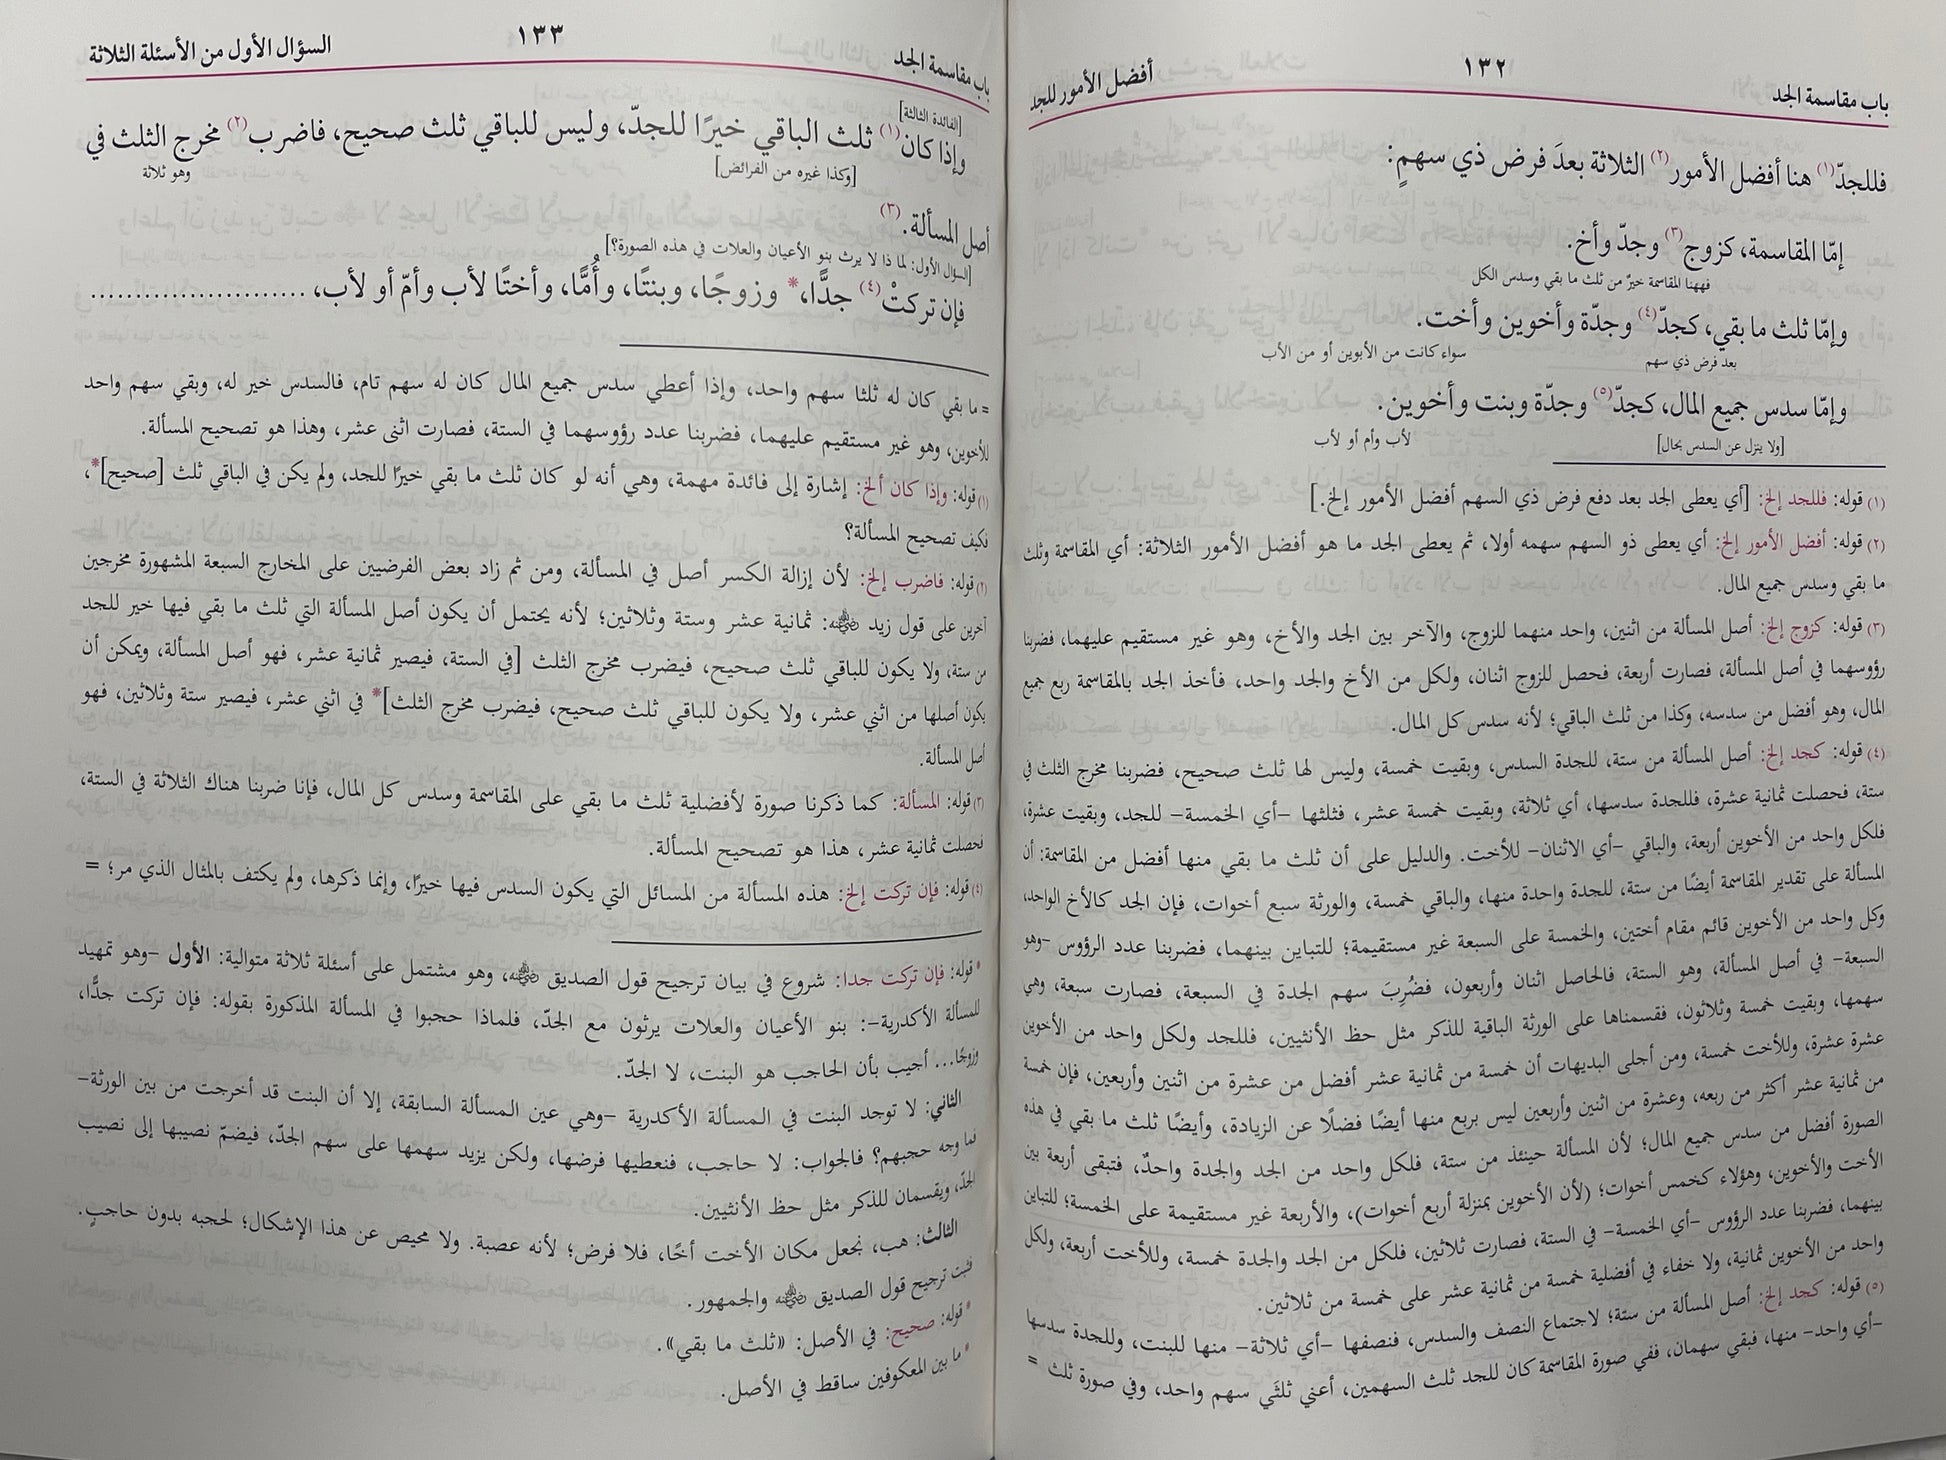 باب مقاسمة الجد
١٣٢
أفضل الأمور للجد
فللجدّ(١) هنا أفضل الأمور(٢) الثلاثة بعدَ فرض ذي سهمٍ:
إمّا المقاسمة، كزوج(٣) وجدّ وأخ.
فههنا المقاسمة خيرٌ من ثلث ما بقي وسدس الكل
وإمّا ثلث ما بقي، كجدّ(٤) وجدّة وأخوين وأخت.
بعد فرض ذي سهم
سواء كانت من الأبوين أو من الأب
وإمّا سدس جميع المال، كجدّ(٥) وجدّة وبنت وأخوين.
[ولا ينزل عن السدس بحال]
لأب وأم أو لأب
(١) قوله: فللجد إلخ: [أي يعطى الجد بعد دفع فرض ذي السهم أفضل الأمور إلخ.]
(٢) قوله: أفضل الأمور إلخ: أي يعطى ذو السهم سهمه أولا، ثم يعطى الجد ما هو أفضل الأمور الثلاثة: أي المقاسمة وثلث
ما بقي وسدس جميع المال.
(٣) قوله: كزوج إلخ: أصل المسألة من اثنين، واحد منهما للزوج، والآخر بين الجد والأخ، وهو غير مستقيم عليهما، فضربنا
رؤوسهما في أصل المسألة، فصارت أربعة، فحصل للزوج اثنان، ولكل من الأخ والجد واحد، فأخذ الجد بالمقاسمة ربع جميع
المال، وهو أفضل من سدسه، وكذا من ثلث الباقي؛ لأنه سدس كل المال.
(٤) قوله: كجد إلخ: أصل المسألة من ستة، للجدة السدس، وبقيت خمسة، وليس لها ثلث صحيح، فضربنا مخرج الثلث في
ستة، فحصلت ثمانية عشرة، فللجدة سدسها، أي ثلاثة، وبقيت خمسة عشر، فثلثها -أي الخمسة- للجد، وبقيت عشرة،
فلكل واحد من الأخوين أربعة، والباقي -أي الاثنان- للأخت. والدليل على أن ثلث ما بقي منها أفضل من المقاسمة: أن
المسألة على تقدير المقاسمة أيضًا من ستة، للجدة واحدة منها، والباقي خمسة، والورثة سبع أخوات، فإن الجد كالأخ الواحد،
وكل واحد من الأخوين قائم مقام أختين، والخمسة على السبعة غير مستقيمة؛ للتباين بينهما، فضربنا عدد الرؤوس -وهو
السبعة- في أصل المسألة، وهو الستة، فالحاصل اثنان وأربعون، فضُرِبَ سهم الجدة في السبعة، فصارت سبعة، وهي
سهمها، وبقيت خمسة وثلاثون، فقسمناها على الورثة الباقية للذكر مثل حظ الأنثيين، فللجد ولكل واحد من الأخوين
عشرة عشرة، وللأخت خمسة، ومن أجلى البديهات أن خمسة من ثمانية عشر أفضل من عشرة من اثنين وأربعين، فإن خمسة
من ثمانية عشر أكثر من ربعه، وعشرة من اثنين وأربعين ليس بربع منها أيضًا فضلًا عن الزيادة، وأيضًا ثلث ما بقي في هذه
الصورة أفضل من سدس جميع المال؛ لأن المسألة حينئذ من ستة، فلكل واحد من الجد والجدة واحدٌ، فتبقى أربعة بين
الأخت والأخوين، وهؤلاء كخمس أخوات؛ (لأن الأخوين بمنزلة أربع أخوات)، والأربعة غير مستقيمة على الخمسة؛ للتباين
بينهما، فضربنا عدد الرؤوس -أي الخمسة- في الستة، فصارت ثلاثين، فلكل من الجد والجدة خمسة، وللأخت أربعة، ولكل
واحد من الأخوين ثمانية، ولا خفاء في أفضلية خمسة من ثمانية عشر على خمسة من ثلاثين.
(٥) قوله: كجد إلخ: أصل المسألة من ستة؛ لاجتماع النصف والسدس، فنصفها -أي ثلاثة- منها للبنت، وللجدة سدسها
-أي واحد- منها، فبقي سهمان، ففي صورة المقاسمة كان للجد ثلث السهمين، أعني ثلثَي سهم واحد، وفي صورة ثلث =
باب مقاسمة الجد
١٣٣
السؤال الأول من الأسئلة الثلاثة
[الفائدة الثالثة]
وإذا كان(١) ثلث الباقي خيرًا للجدّ، وليس للباقي ثلث صحيح، فاضرب(٢) مخرج الثلث في
[وكذا غيره من الفرائض]
وهو ثلاثة
أصل المسألة.(٣)
[السؤال الأول: لما ذا لا يرث بنو الأعيان والعلات في هذه الصورة؟]
فإن تركتْ(٤) جدًّا،* وزوجًا، وبنتًا، وأُمًّا، وأختًا لأب وأمّ أو لأب، ........................
= ما بقي كان له ثلثا سهم واحد، وإذا أعطي سدس جميع المال كان له سهم تام، فالسدس خير له، وبقي سهم واحد
للأخوين، وهو غير مستقيم عليهما، فضربنا عدد رؤوسهما في الستة، فصارت اثنى عشر، وهذا هو تصحيح المسألة.
(١) قوله: وإذا كان ألخ: إشارة إلى فائدة مهمة، وهي أنه لو كان ثلث ما بقي خيرًا للجد، ولم يكن في الباقي ثلث [صحيح]*،
فكيف تصحيح المسألة؟
(٢) قوله: فاضرب إلخ: لأن إزالة الكسر أصل في المسألة، ومن ثم زاد بعض الفرضيين على المخارج السبعة المشهورة مخرجين
آخرين على قول زيد رضي الله عنه: ثمانية عشر وستة وثلاثين؛ لأنه يحتمل أن يكون أصل المسألة التي ثلث ما بقي فيها خير للجد
من ستة، ولا يكون للباقي ثلث صحيح، فيضرب مخرج الثلث [في الستة، فيصير ثمانية عشر، فهو أصل المسألة، ويمكن أن
يكون أصلها من اثني عشر، ولا يكون للباقي ثلث صحيح، فيضرب مخرج الثلث]* في اثني عشر، فيصير ستة وثلاثين، فهو
أصل المسألة.
(٣) قوله: المسألة: كما ذكرنا صورة لأفضلية ثلث ما بقي على المقاسمة وسدس كل المال، فإنا ضربنا هناك الثلاثة في الستة،
فحصلت ثمانية عشر، هذا هو تصحيح المسألة.
(٤) قوله: فإن تركت إلخ: هذه المسألة من المسائل التي يكون السدس فيها خيرًا، وإنما ذكرها، ولم يكتف بالمثال الذي مر؛ =
* قوله: فإن تركت جدا: شروع في بيان ترجيح قول الصديق رضي الله عنه، وهو مشتمل على أسئلة ثلاثة متوالية: الأول -وهو تمهيد
للمسألة الأكدرية-: بنو الأعيان والعلات يرثون مع الجدّ، فلماذا حجبوا في المسألة المذكورة بقوله: فإن تركت جدًّا،
وزوجًا... أجيب بأن الحاجب هو البنت، لا الجدّ.
الثاني: لا توجد البنت في المسألة الأكدرية -وهي عين المسألة السابقة، إلا أن البنت قد أخرجت من بين الورثة-
فما وجه حجبهم؟ فالجواب: لا حاجب، فنعطيها فرضها، ولكن يزيد سهمها على سهم الجدّ، فيضمّ نصيبها إلى نصيب
الجدّ، ويقسمان للذكر مثل حظ الأنثيين.
الثالث: هب، نجعل مكان الأخت أخًا، فلا فرض؛ لأنه عصبة. ولا محيص عن هذا الإشكال؛ لحجبه بدون حاجبٍ.
فثبت ترجيح قول الصديق رضي الله عنه والجمهور.
* قوله: صحيح: في الأصل: «ثلث ما بقي».
* ما بين المعكوفين ساقط في الأصل.